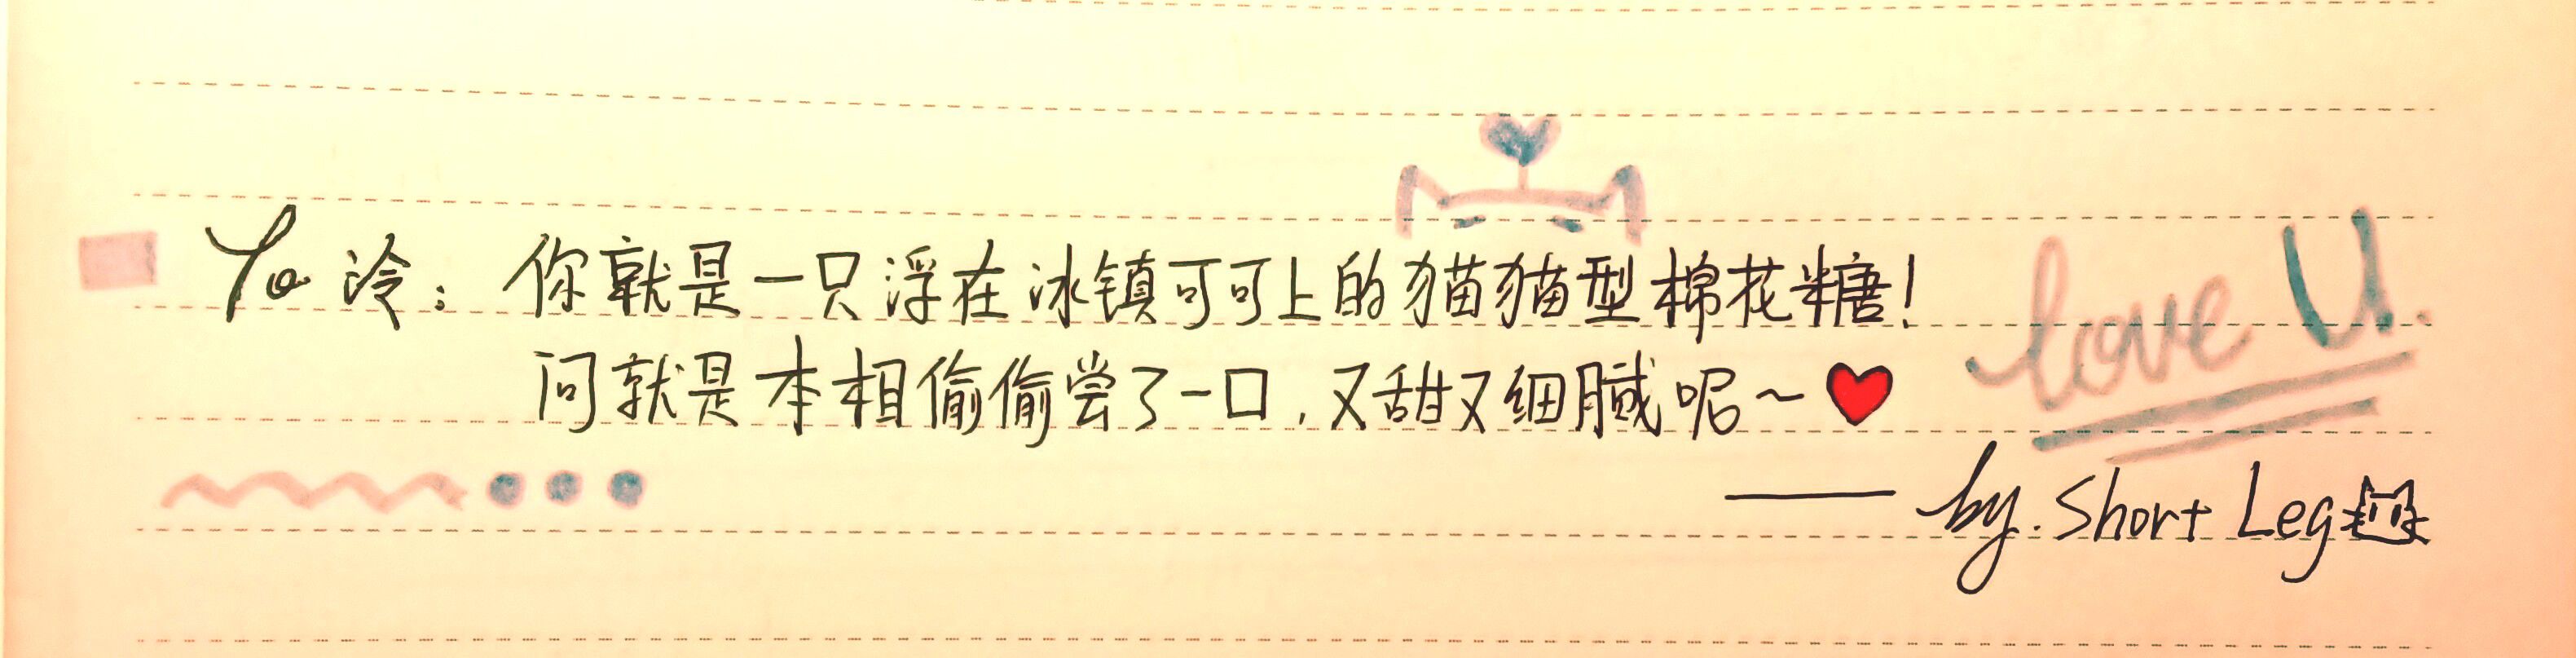 To 泠：你就是一只浮在冰镇可可上的猫猫型棉花糖！
问就是本相偷偷尝了一口，又甜又细腻呢～
love U.
——by. Short Leg